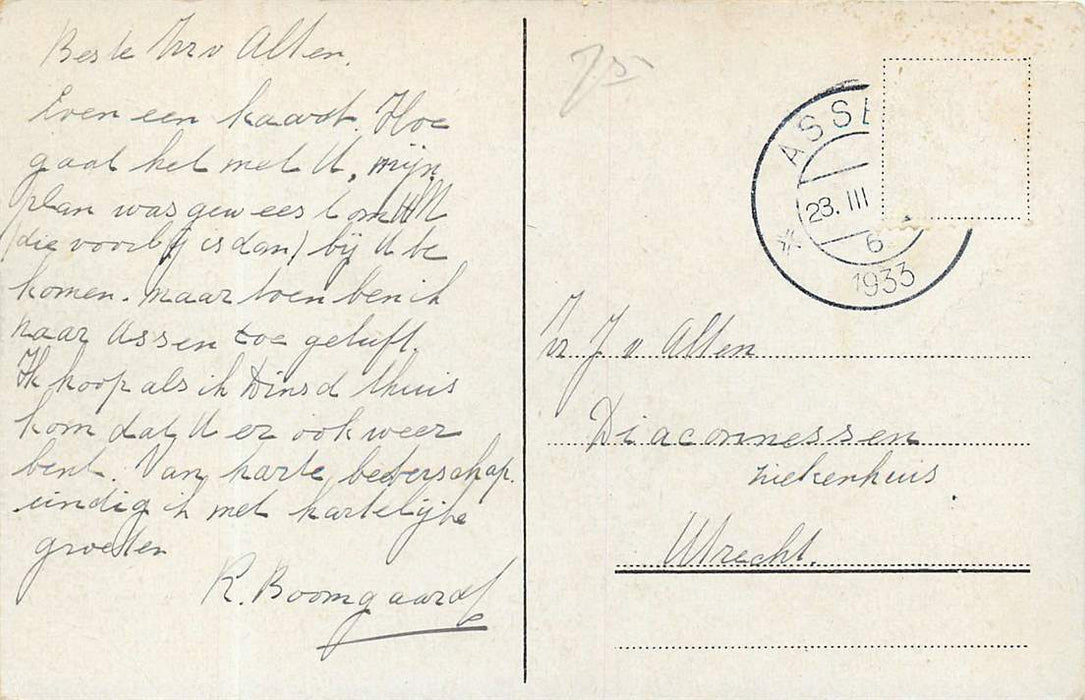 Beste Mr v Alten.
Even een kaart. Hoe
gaat het met U, mijn
plan was geweest om
(die voorbij is dan) bij U te
komen. maar toen ben ik
naar Assen toe
Ik hoop als ik Dinsd thuis
kom dat U er ook weer
bent. Van harte beterschap.
eindig ik met hartelijke
groeten
R. Boomgaard
ASSE
23. III
6
1933
J v Alten
Diaconnessen
ziekenhuis
Utrecht.